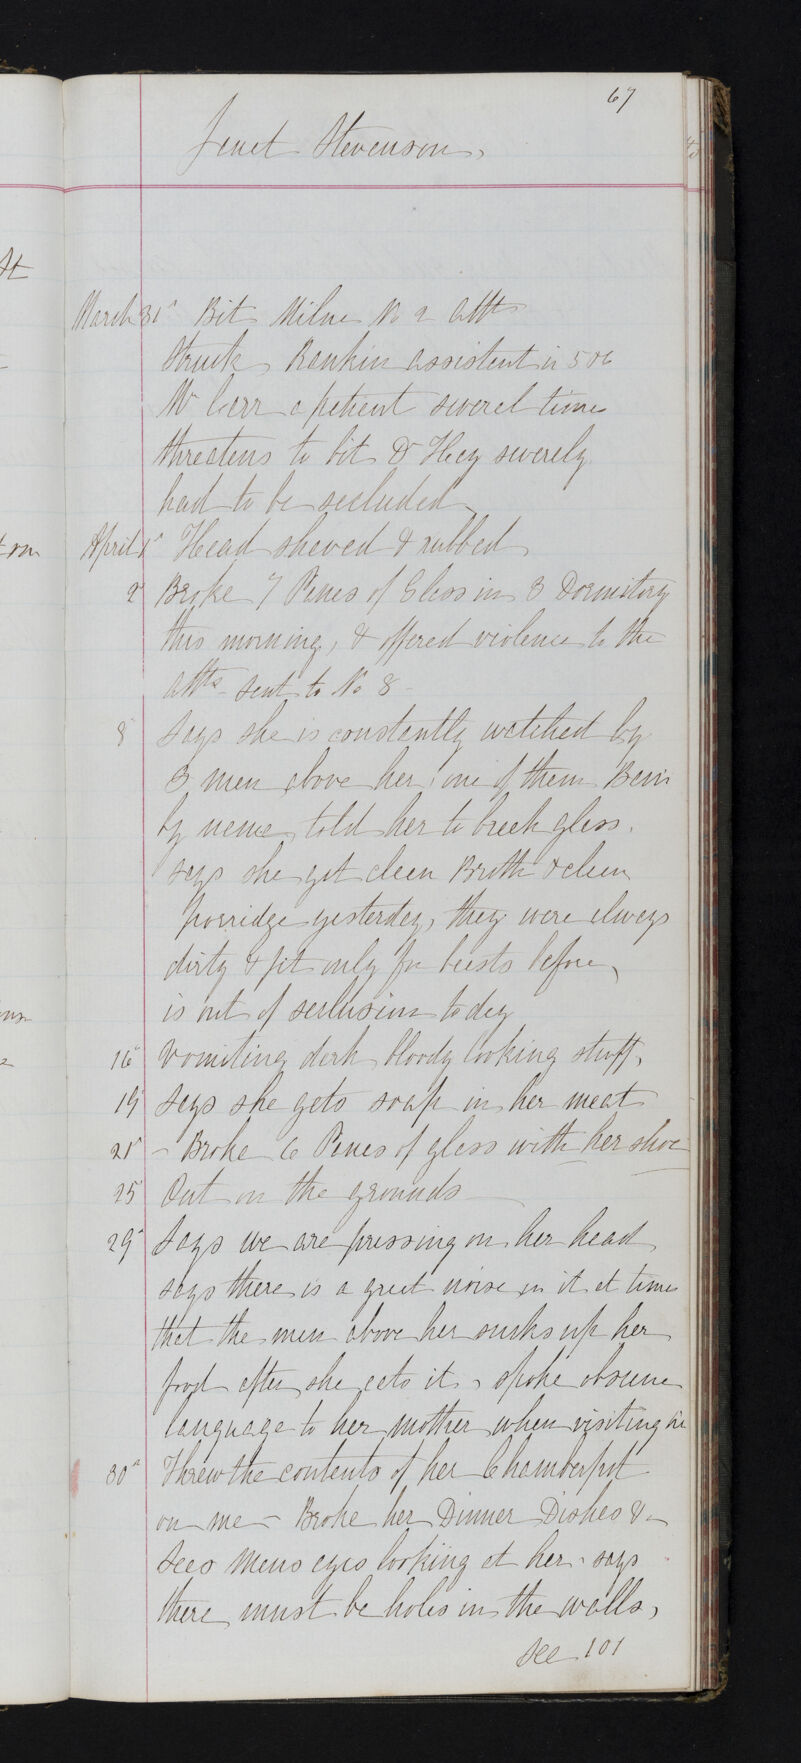 67
Janet Stevenson,
March 31st Bit Milne No 2 Attt
Struck Rankin assistent in 5 or 6
W Carr a patient severel times
threatens to bit Dr Hey severely
had to be secluded
April 1st Head shaved & rubbed
2d Broke 7 Panes of Glass in 3 Dormitory
this morning, & offered violence to the
attts sent to No 8
8 Says she is constantly watched by
3 men above her one of them
by name told her to break glass.
Says she got clean Broth & clean
Porridge yesterday, they were always
dirty & fit only for beests before,
is out of seclusion today
16th Vomiting dark bloody looking stuff,
19 Says she gets soap in her meat
21st - Broke 6 Panes of glass with her shoe
25 Out on the grounds
29th Says we are pressing on her head
says there is a great noise in it at times
that the men above her sucks up her
food after she eats it, spoke obscene
language to her mother when visiting
30th Threw the contents of her Chamberpot
on me - Broke her Dinner Dishes &
Sees Mens eyes looking at her - says
there must be holes in the walls,
See 101
St